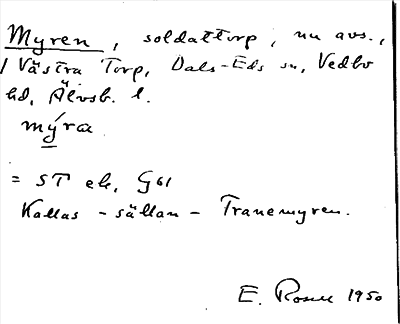 Myren, soldattorp, nu avs.,
/ Västra Torp, Dals-Eds sn, Vedbo
hd, Älvsb. l.
mýra
= ST ek, G61
Kallas - sällan - Tranemyren.
E. Rosell 1950